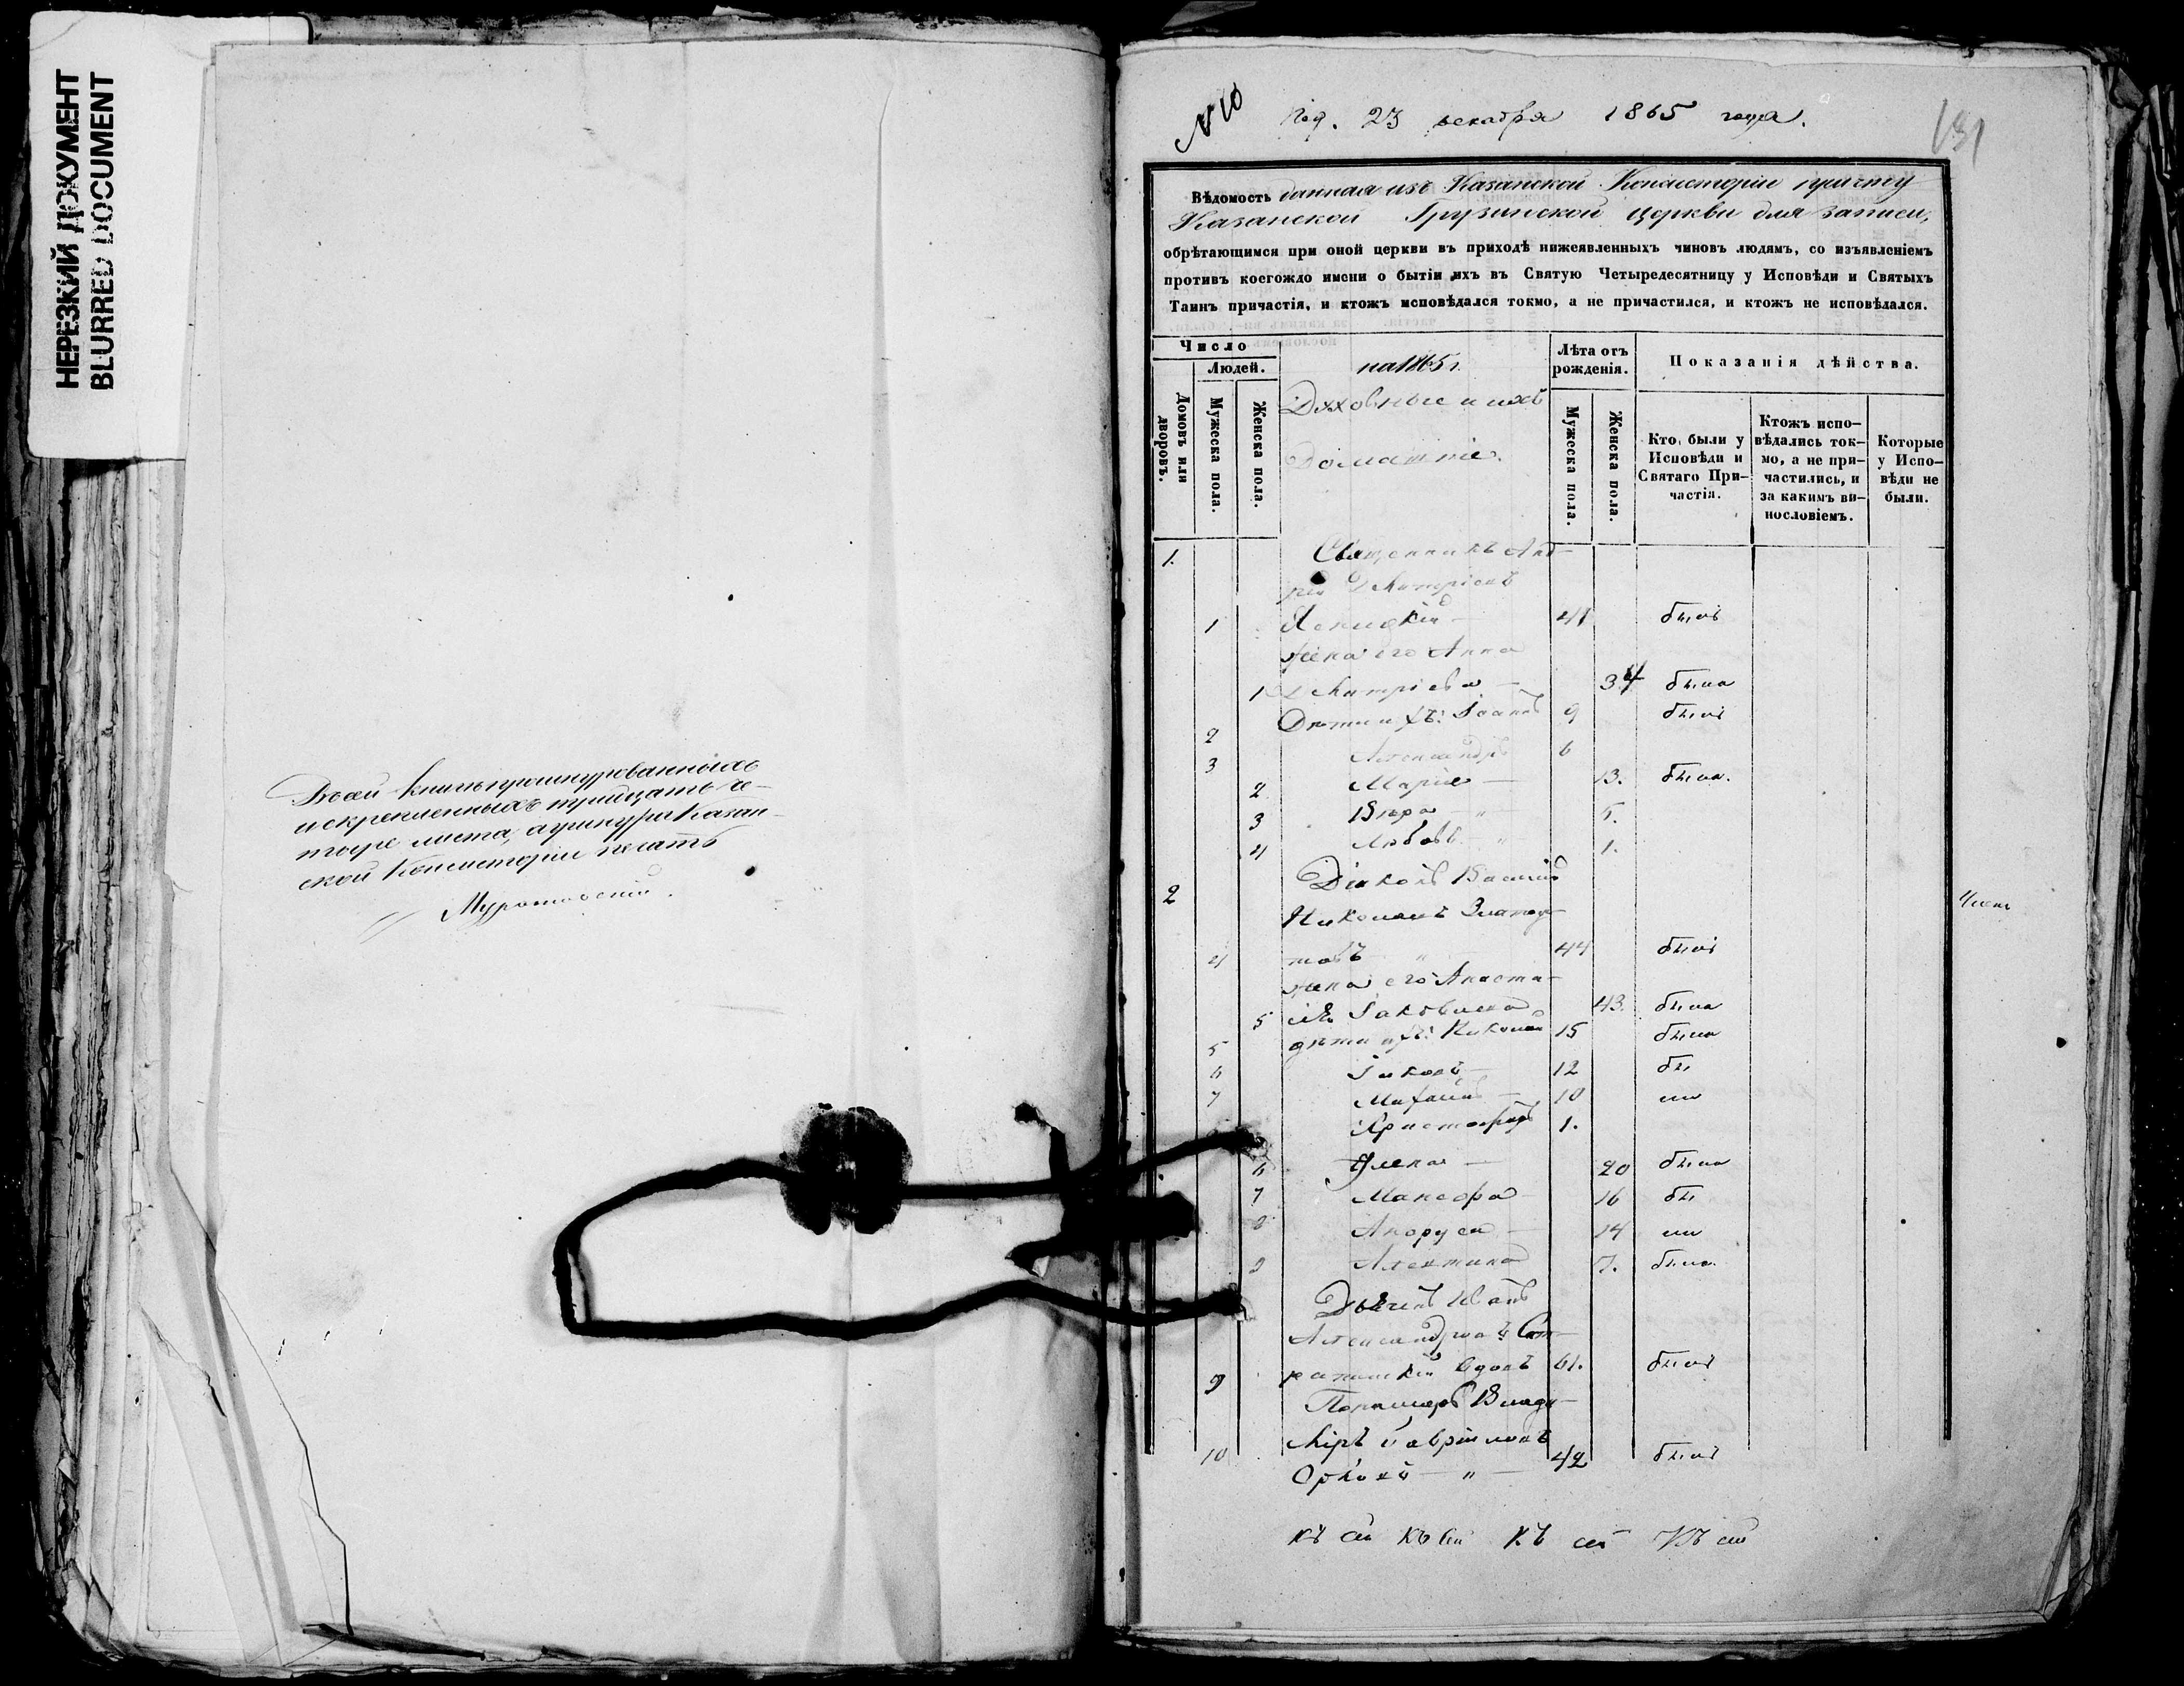 НЕРЕЗКИЙ ДОКУМЕНТ
BLURRED DOCUMENT
Въ сей книгѣ прошнурованныхъ
и скрепленныхъ тридцать че-
тыре листа, а при шнурѣ Казан-
ской Консисторіи печать
№ 10
23 декабря 1865 года.
131
Вѣдомость данная изъ Казанской Консисторіи причту
Казанской Грузинской церкви для записи,
обрѣтающимся при оной церкви въ приходѣ нижеявленныхъ чиновъ людямъ, со изъявленіемъ
противъ коегождо имени о бытіи ихъ въ Святую Четыредесятницу у Исповѣди и Святыхъ
Таинъ причастія, и ктожъ исповѣдался токмо, а не причастился, и ктожъ не исповѣдался.
Число
Людей.
Домовъ или дворовъ.
Мужеска пола.
Женска пола.
на 1865 г.
Духовные и ихъ
Домашніе.
Лѣта отъ рожденія.
Мужеска пола.
Женска пола.
Показанія дѣйства.
Кто были у Исповѣди и Святаго При-частія.
Ктожъ испо-вѣдались ток-мо, а не при-частились, и за какимъ ви-нословіемъ.
Которые у Испо-вѣди не были.
1. Священникъ Анд-
рей Димитріевъ
1 41 былъ
жена его Анна
1 Димитріева 34 была
2 Дѣти ихъ: Іоаннъ 9 былъ
3 Александръ 6
2 Марія 13. была.
3 Вѣра 5.
4 Любовь 1.
2 Діаконъ Василій
Николаевъ Злато-
4 товъ 44 былъ
жена его Анаста-
5 сія Іаковлева 43. была
5 дѣти ихъ: Николай 15 были
6 Іаковъ 12 бы
7 Михаилъ 10 ли
Христофоръ 1.
6 Елена 20 была
7 16 бы
8 14 ли
9 7. была
Дьячекъ Иванъ
Александровъ
9 вдовъ 61. былъ
Пономарь Влади-
10 міръ Гавриловъ
Орловъ 42 былъ
къ сей къ сей къ сей къ сей